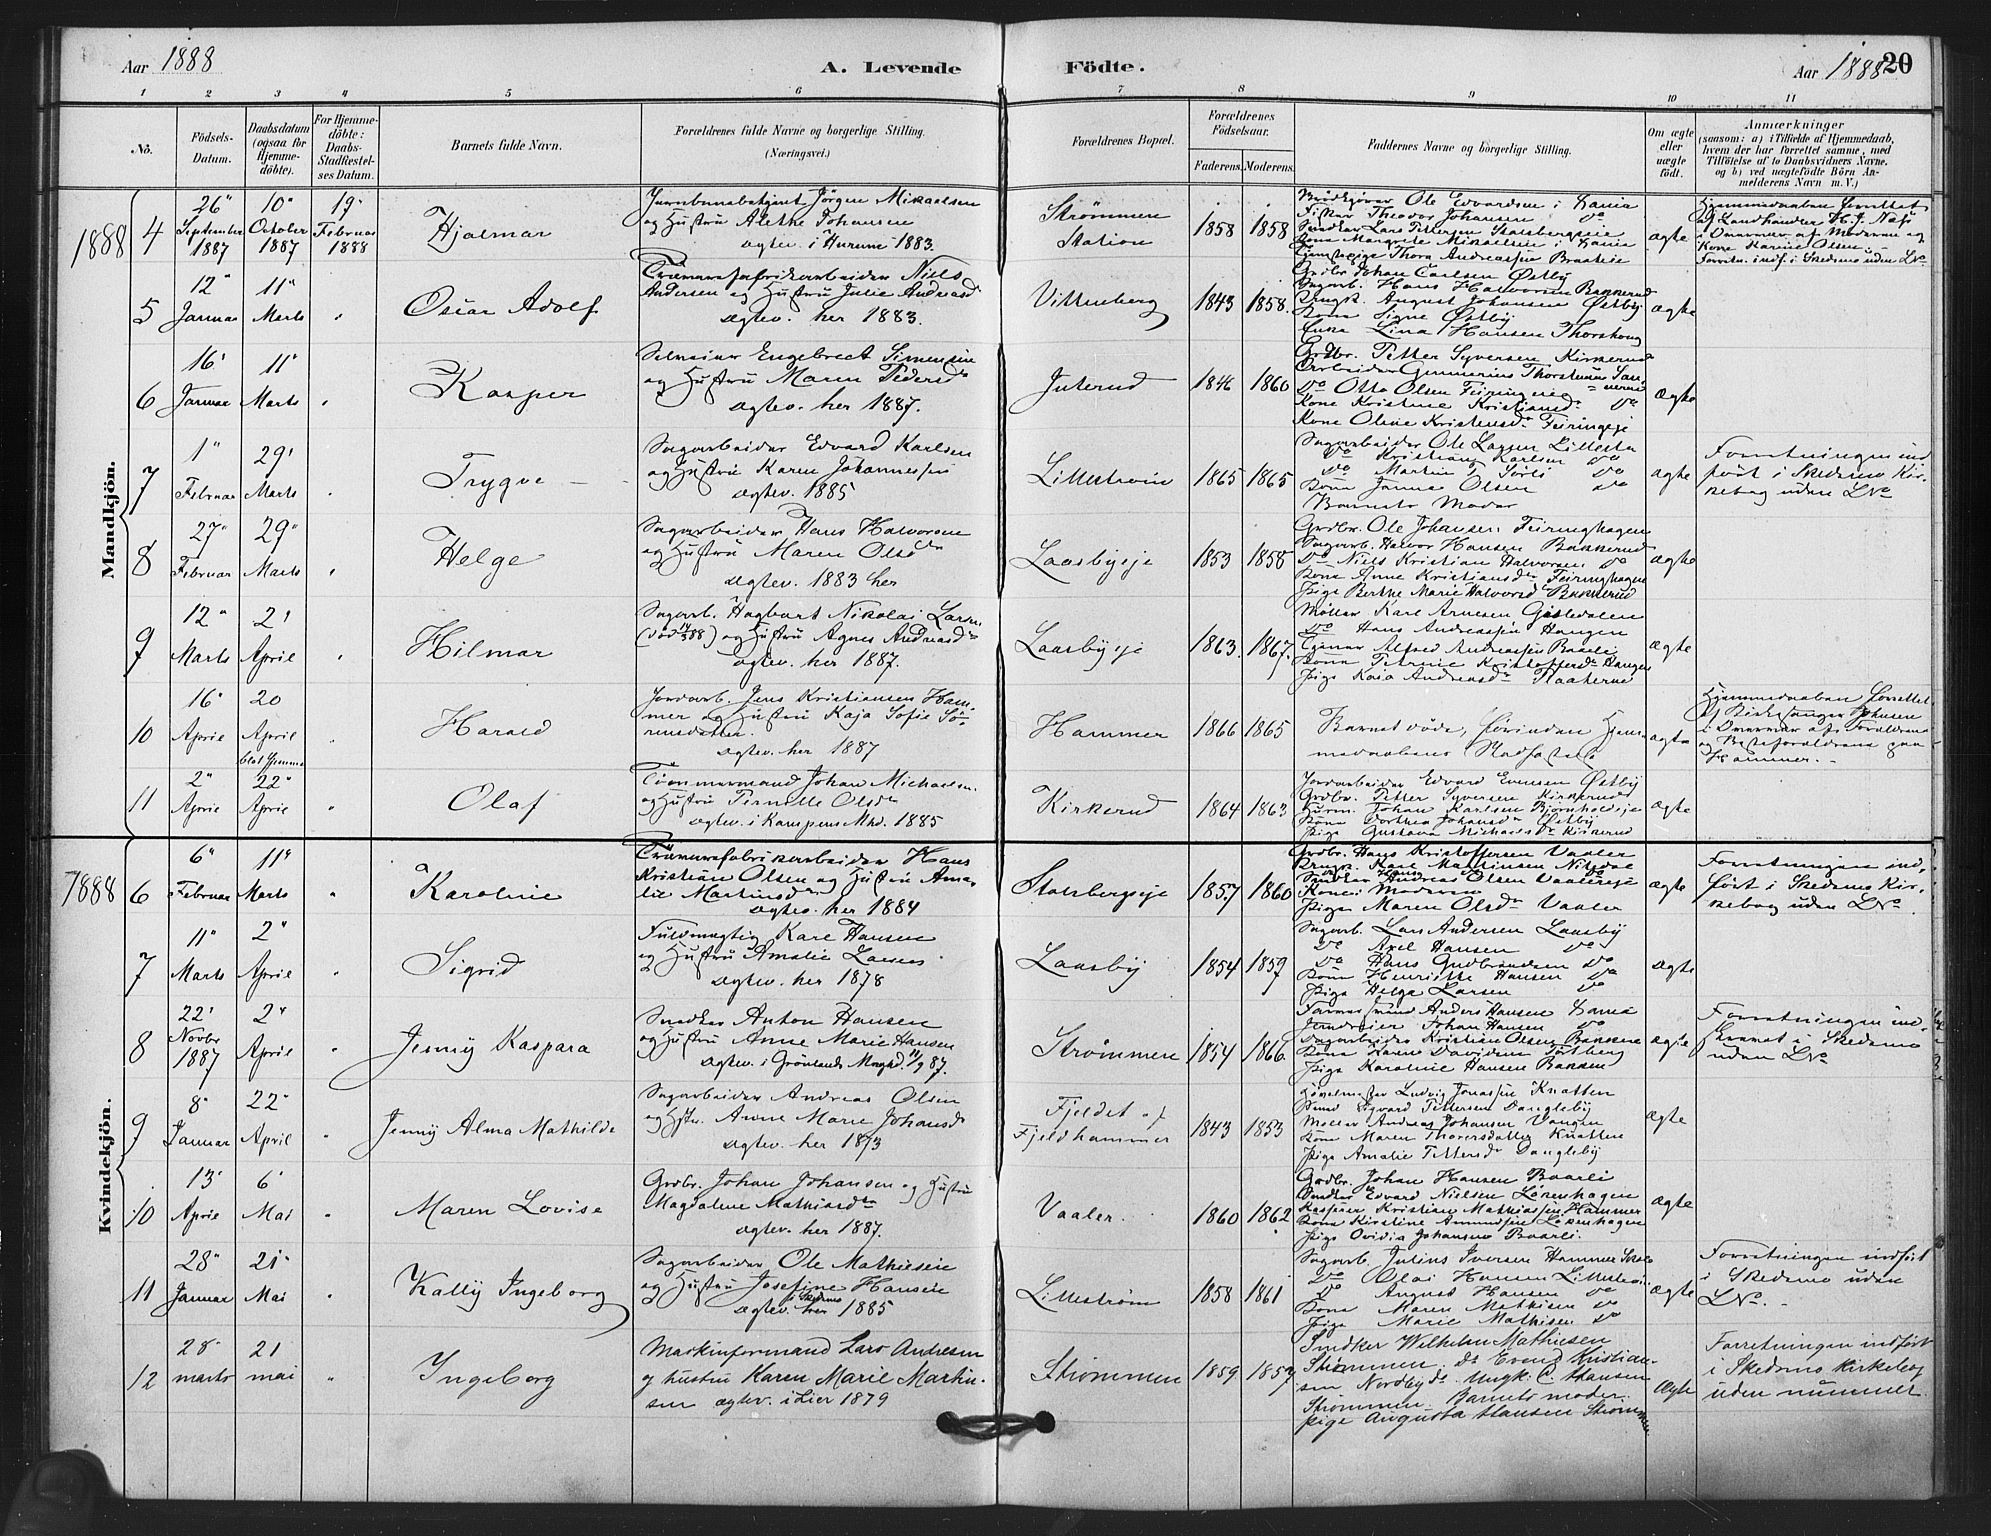 Aar 1888
A. Levende
Födte.
Aar 1888
20
1 2 3 4 5 6 7 8 9 10 11
No.
Födsels-
Datum.
Daabsdatum
(ogsaa for
Hjemme-
döbte).
For Hjemme-
döbte:
Daabs-
Stadfæstel-
ses Datum.
Barnets fulde Navn.
Forældrenes fulde Navne og borgerlige Stilling.
(Næringsvei.)
Forældrenes Bopæl.
Forældrenes
Födselsaar.
Faderens.
Moderens.
Faddernes Navne og borgerlige Stilling.
Om ægte
eller
uægte
födt.
Anmærkninger
(saasom: a) i Tilfælde af Hjemmedaab,
hvem der har forrettet samme, med
Tilföielse af to Daabsvidners Navne,
og b) ved uægtefödte Börn An-
melderens Navn m. V.)
Mandkjön.
1888
4
26"
September
1887
10"
October
1887
19"
Februar
1888
Hjalmar
Jernbanebetjent Jörgen Mikaelsen
og Hustru Alethe Johansen
ægtev. i Hurum 1883.
Strömmen
Station
1858
1858
ægte
5
12"
Januar
11"
Marts
Oscar Adolf
Trævarefabrikarbeider Niels
Andersen og Hustru Julie Andreasd
ægtev. her 1883.
Vittenberg
1843
1858.
Grdbr. Johan Carlsen Østby
Sagarb. Hans Halvorsen Bakkerud
Ungk. August Johansen Østby
Kone Signe Østby
Enke Lina Hansen
ægte
6
16'
Januar
11"
Marts
Kasper
Selveier Engebrect Simensen
og Hustru Maren Pedersd
ægtev. her 1887.
Juterud
1846
1860
Grdbr. Petter Syversen Kirkerud
do Otto Olsen
Kone Kristine Kristiansd do
Kone Oline
ægte
7
1"
Februar
29'
Marts
Trygve
Sagarbeider Edvard Karlsen
og Hustru Karen Johannessen
ægtev. 1885
Lillestrøm
1865
1865
Sagarbeider Ole Larsen Lillestr
do Kristian Karlsen do
do Martin Sørli do
Kone Janna Olsen do
Barnets Moder
ægte
Forretningen ind
ført i Skedsmo Kir-
kebog uden LNo
8
27"
Februar
29"
Marts
Helge
Sagarbeider Hans Halvorsen
og Hustru Maren Olsd
ægtev. 1883 her
Laasbyeje
1853
1858
Grdbr. Ole Johansen Feiringhagen
Sagarb. Halvor Hansen Bakkerud
do Niels Kristian Halvorsen do
Kone Anne Kristiansd Feiringhagen
Pige Berthe Marie Halvorsd Bakkerud
ægte
9
12"
Marts
2'
April
Hilmar
Sagarb. Hagbart Nikolai Larsen
og Hustru Agnes Andreasd
ægtev. her 1887.
Laasbyeje
1863.
1867.
Møller Karl Arnesen
do Hans Andreassen Haugen
Alfred Andreassen Baarli
Kone Petrine Kristoffersd Haugen
Pige Kaia Andreasd
ægte
10
16"
April
20
April
blot hjemme
Harald
Jordarb. Jens Kristiansen Ham-
mer og Hustru Kaja Sofie Sö-
rensdatter.
ægtev. her 1887
Hammer
1866
1865
Barnet døde, førinden Hjem-
medaabens Stadfæstelse
ægte
Hjemmedaaben forrettet
af Kirkesanger Johnsen
i Nærvær af Forældrene
og Besteforældrene paa
Hammer.
11
2"
April
22"
April
Olaf
Tömmermand Johan Michaelsen
og Hustru Pernille Olsd
ægtev. i Kampens Mhd. 1885
Kirkerud
1864
1863
Jordarbeider Edvard Evensen Østby
Grdbr. Petter Syversen Kirkerud
Husm. Johan Karlsen Bjørnholdseje
Kone Dorthea Johansd Østby
Pige Gustava Michaelsd Kirkerud
ægte
Kvindekjön.
1888
6
6"
Februar
11"
Marts
Karoline
Trævarefabrikarbeider Hans
Kristian Olsen og Hustru Ama-
lie Martinsd
ægtev. her 1884
Stalsbergeje
1857
1860
Grdbr. Hans Kristoffersen Vaaler
Ungk. Karl Mathiasen Nitedal
Andreas Olsen Vaalereje
Kone: Moderen
Pige Maren Olsd Vaaler
ægte
Forretningen ind-
ført i Skedsmo Kir-
kebog uden LNo
7
11"
Marts
2"
April
Sigrid
Fuldmægtig Karl Hansen
og Hustru Amalie Larsen
ægtev. her 1878
Laasby
1854
1859
Sagarb. Lars Andersen Laasby
do Axel Hansen do
do Hans Gudbrandsen do
Kone Henriette Hansen do
Pige Helga Larsen do
ægte
8
22'
Novbr
1887
2"
April
Jenny Kaspara
Snedker Anton Hansen
og Hustru Anne Marie Hansen
ægtev. i Grønlands Mnghd. 11/9 87.
Strømmen
1854
1866
Anders Hansen
Johan Hansen do
Sagarbeider Kristian Olsen Bakken
Kone Karen Davidsen
Pige Karoline Hansen Bakken
ægte
Forretningen ind-
skrevet i Skedsmo
uden LNo
9
8"
Januar
22"
April
Jenny Alma Mathilde
Sagarbeider Andreas Olsen
og Hstr. Anne Marie Johansd
ægtev. her 1873
Fjeldet af
Fjeldhammer
1843
1853
Ludvig Jonassen Knatten
Sigvard Pettersen Dangleby
Møller Andreas Johansen Vangen
Kone Maren Thorersdatter Knatten
Pige Amalie Pettersd Dangleby
ægte
10
13'
April
6'
Mai
Maren Lovise
Grdbr. Johan Johansen og Hustru
Magdalene Mathisesd
ægtev. her 1887.
Vaaler.
1860
1862
Grdbr. Johan Hansen Baarli
Snedker Edvard Nielsen Lörenhagen
Kasserer Kristian Mathiassen Hammer
Kone Kirstine Amundsen Lörenhagen
Pige Ovidia Johansen Baarli
ægte
11
28"
Januar
21"
Mai
Kally Ingeborg
Sagarbeider Ole Mathisen
og Hustru Josefine Hansen
i Skedsmo
ægtev. her 1885
Lilleström
1858
1861
Sagarb. Julius Iversen Hammer
do Olai Hansen Lillestr
do August Hansen do
Kone Maren Mathisen do
Pige Marie Mathisen do
ægte
Forretningen indført
i Skedsmo uden
LNo.
12
28"
marts
21
mai
Ingeborg
Maskinformand Lars Andresen
og hustru Karen Marie Martin-
sen ægtev. i Lier 1879
Strømmen
1859
1859
Sndker Wilhelm Mathiesen
Strømmen. do Evend Kristian-
sen Nordby do. Ungk. C. Hansen
Strømmen. Barnets moder.
Pige Augusta Hansen Strømmen
Ægte
Forretningen indført
i Skedsmo kirkebog
uden nummer